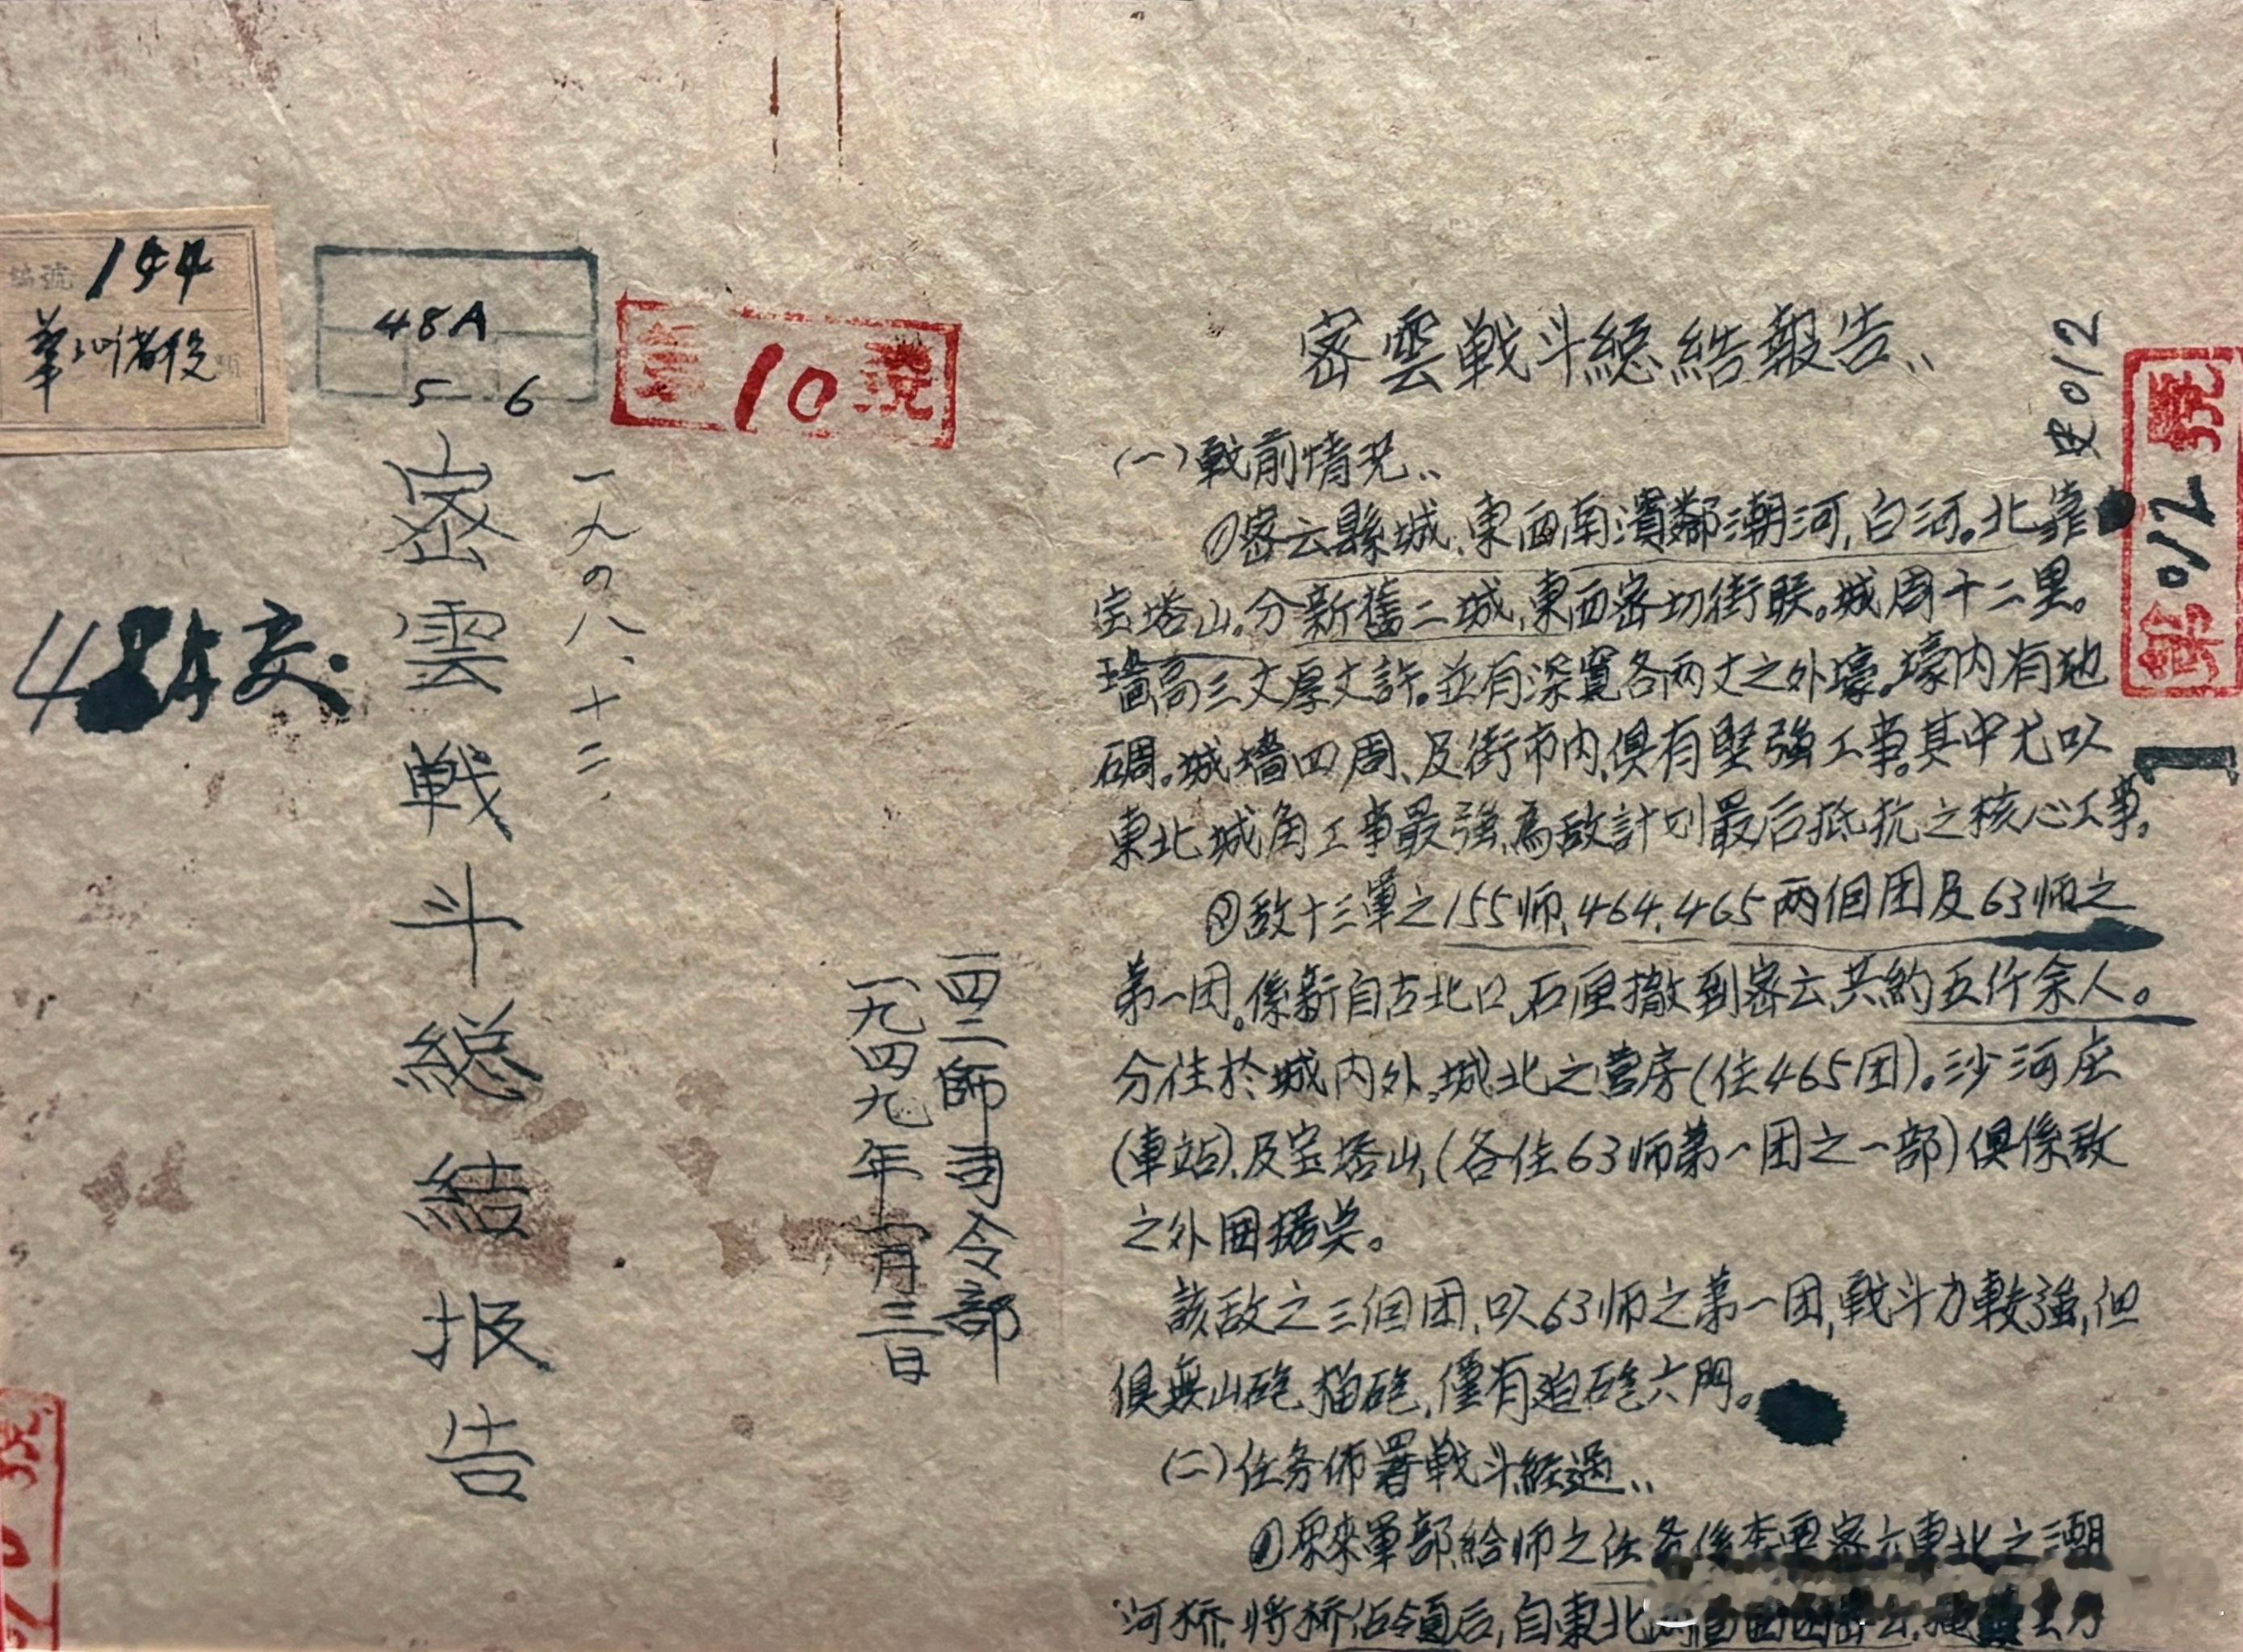 編號 144
48A
5 6
第10號
一九四八、十二、
密雲戰斗總結报告
一四二師司令部
一九四九年一月三日
密雲戰斗總結報告
012
第012號
(一)戰前情况
①密云縣城、東西南濱鄰潮河,白河。北靠
宝塔山。分新舊二城,東西密切街联。城周十二里。
墙高三丈厚丈許。並有深寬各两丈之外壕。壕内有地
碉。城墻四周、及街市内,俱有堅強工事。其中尤以
東北城角工事最強,爲敌計划最后抵抗之核心工事。
②敌十三軍之155师、464.465两個团及63师之
第一团。係新自古北口、石匣撤到密云,共約五仟余人。
分住於城内外。城北之营房(住465团)。沙河庄
(車站)、及宝塔山,(各住63师第一团之一部)俱係敌
之外围据点。
該敌之三個团,以63师之第一团,戰斗力較強,但
俱無山砲、猫砲,僅有迫砲六門。
(二)任务佈署戰斗經過
①原來軍部給师之任务係 密云東北之潮
河桥,將桥佔領后,自東北